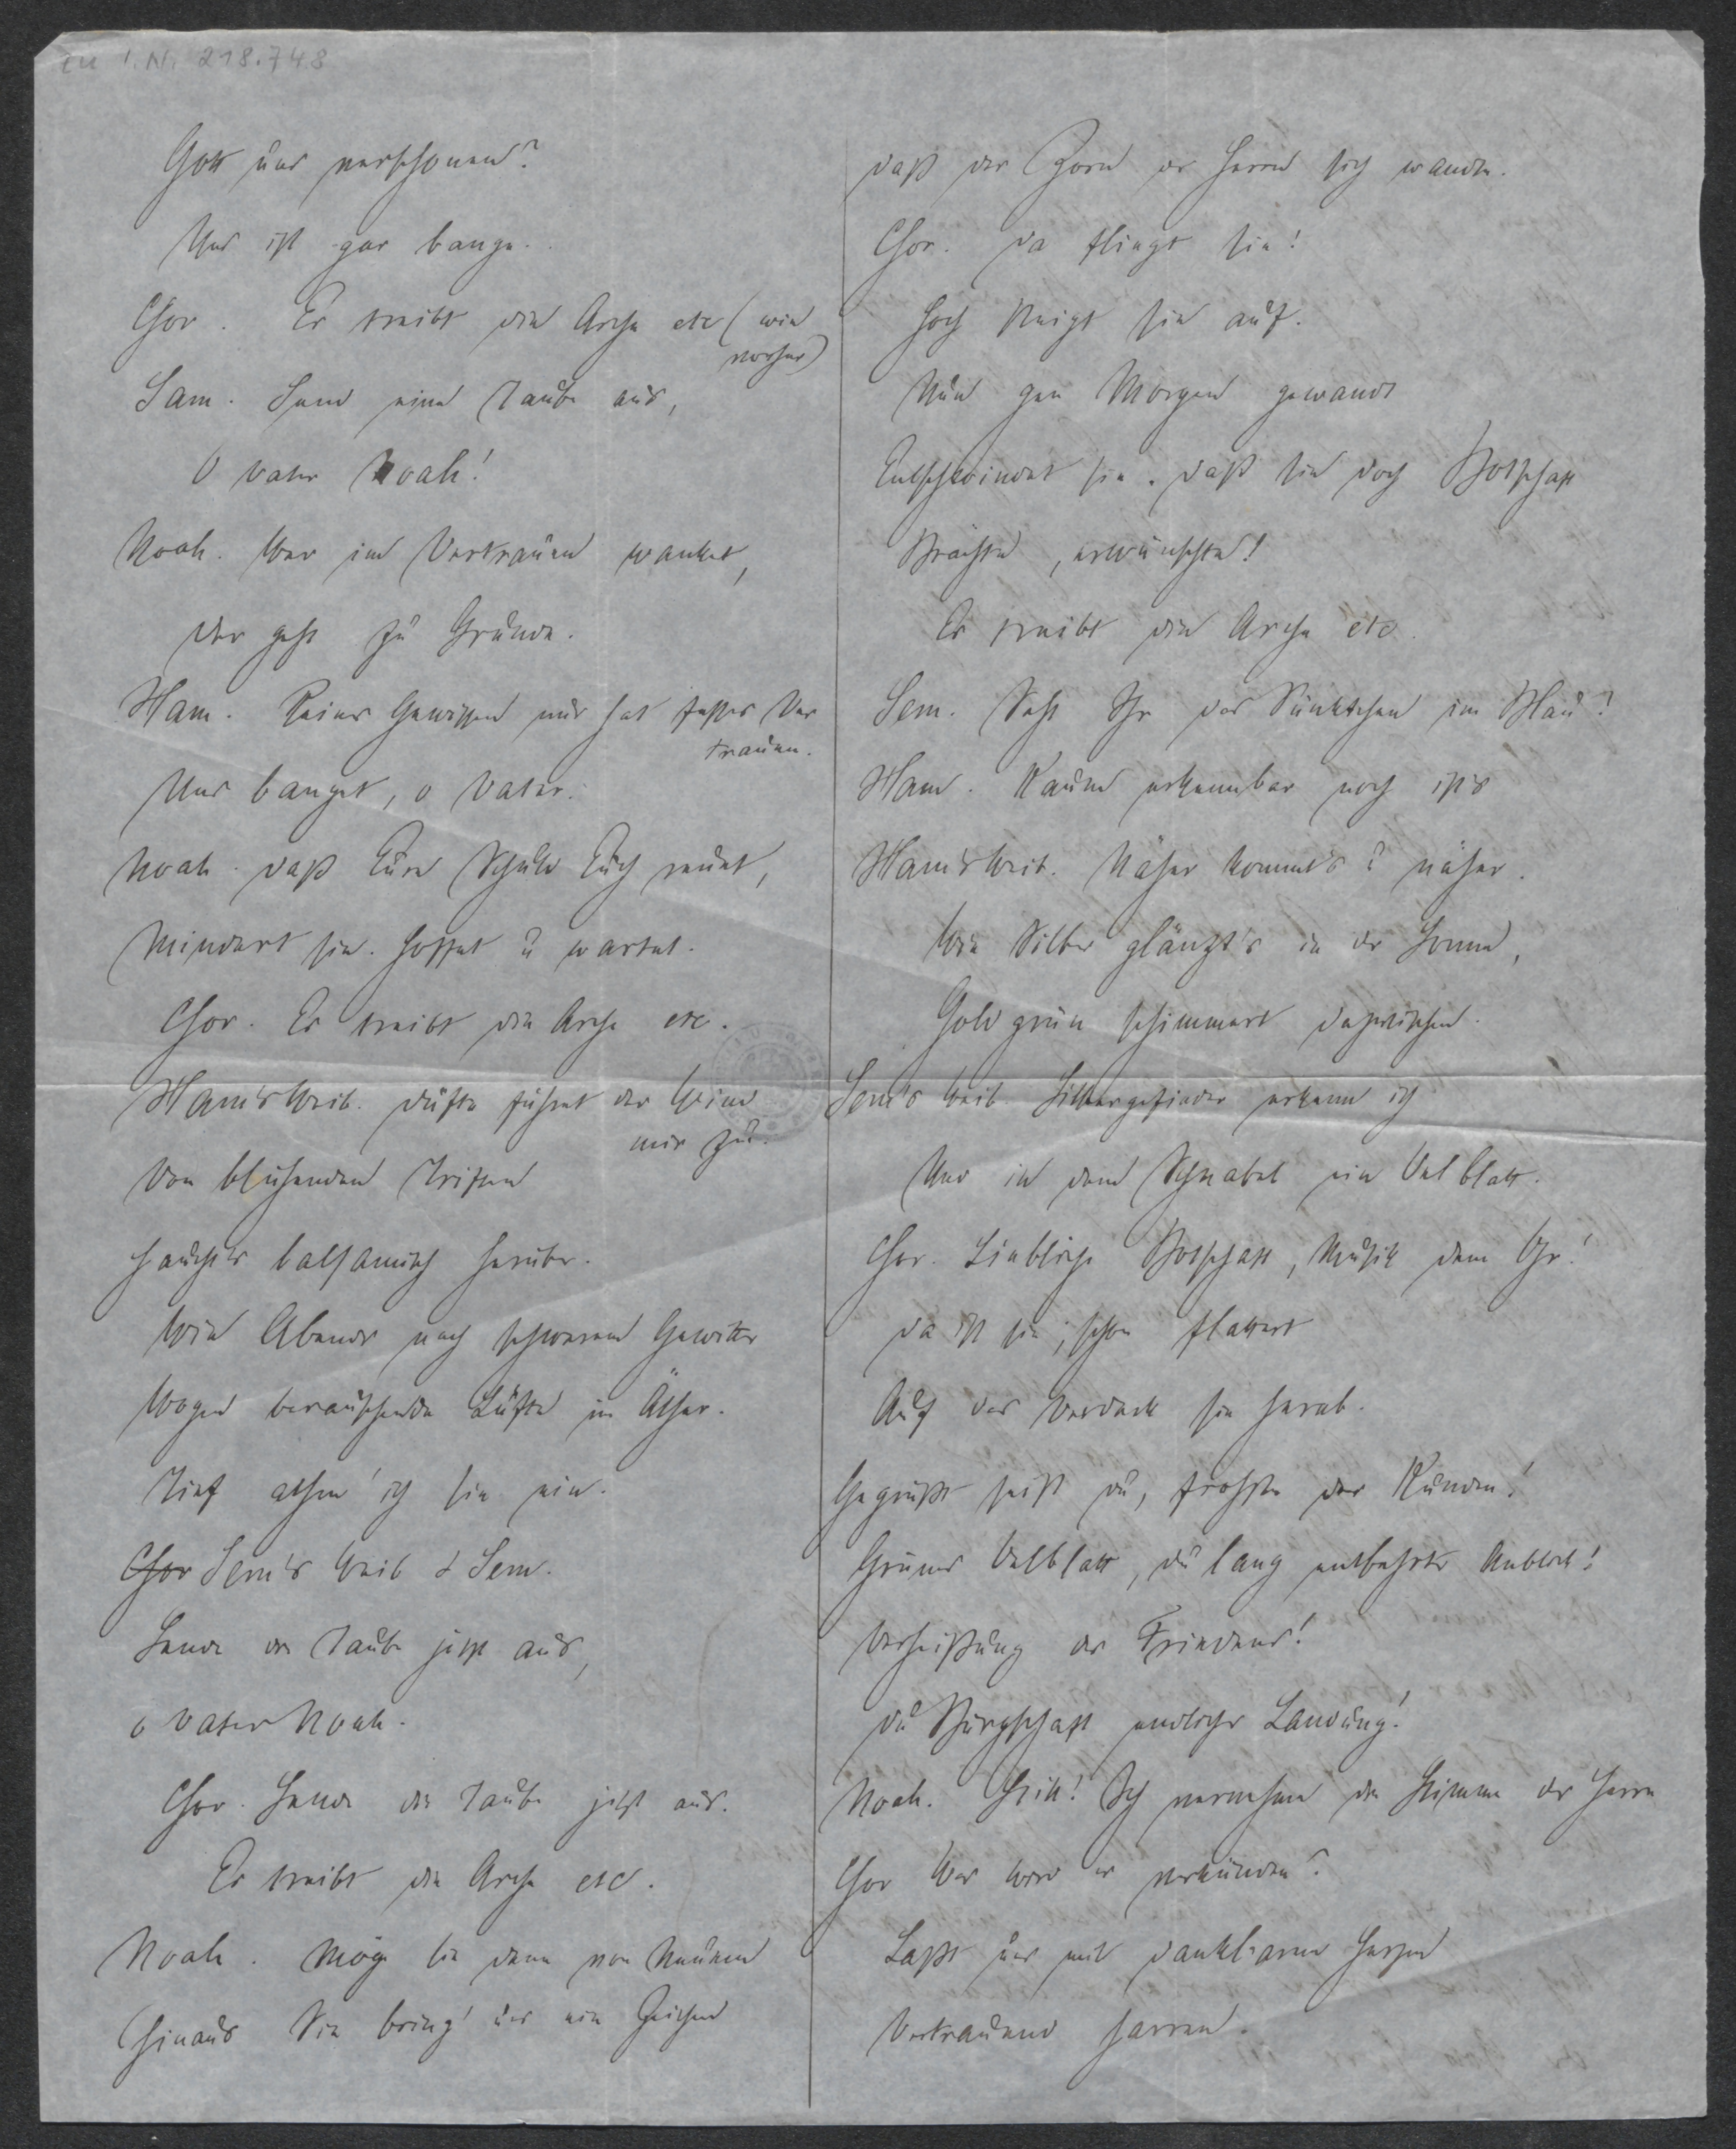 zu I.N. 218.748
Gott uns verschonen?
Uns ist gar bange.
Chor. Es treibt die Arche etc (wie
vorher)
Sem. Send eine Taube aus,
O Vater Noah!
Noah. Wer im Vertrauen wanket,
der geht zu Grunde.
Ham. Reines Gewissen nur hat festes Ver
trauen.
Uns banget, o Vater.
Noah. Daß Eure Schuld Euch reuet,
Mindert sie. Hoffet u wartet.
Chor. Es treibt die Arche etc.
Ham's Weib. Düfte führet der Wind
mir zu.
Von blühenden Triften
Haucht's balsamisch herüber.
Wie Abends nach schwerem Gewitter
Wogen berauschende Lüfte im Äther.
Tief athm' ich sie ein.
Chor Sem's Weib & Sem.
Sende die Taube jetzt aus,
o Vater Noah.
Chor. Sende die Taube jetzt aus.
Es treibt die Arche etc.
Noah. Mög sie denn von Neuem
Hinaus Sie bring' uns ein Zeichen
daß der Zorn des Herrn sich wandte.
Chor. Da fliegt sie!
Hoch steigt sie auf.
Nun gen Morgen gewandt
Entschwindet sie. Daß sie doch Botschaft
Brächte, erwünschte!
Es treibt die Arche etc.
Sem. Seht Ihr das Pünktchen im Blau?
Ham. Kaum erkennbar noch ist's
Ham's Weib. Näher kommt's & näher.
Wie Silber glänzt's in der Sonne,
Gold grün schimmert dazwischen.
Sem's Weib Silbergefieder erkenn ich
Und in dem Schnabel ein Oelblatt.
Chor. Liebliche Botschaft, Musik dem Ohr!
Da ist sie; schon flattert
Auf das Verdeck sie herab.
Gegrüßt seist du, frohste der Kunden!
Grünes Oelblatt, du lang entbehrter Anblick!
Verheißung des Friedens!
Du Bürgschaft endlicher Landung!
Noah. Still! Ich vernehme die Stimme des Herrn
Chor Was wird er verkünden?
Laßt uns mit dankbarem Herzen
Vertrauend harren.